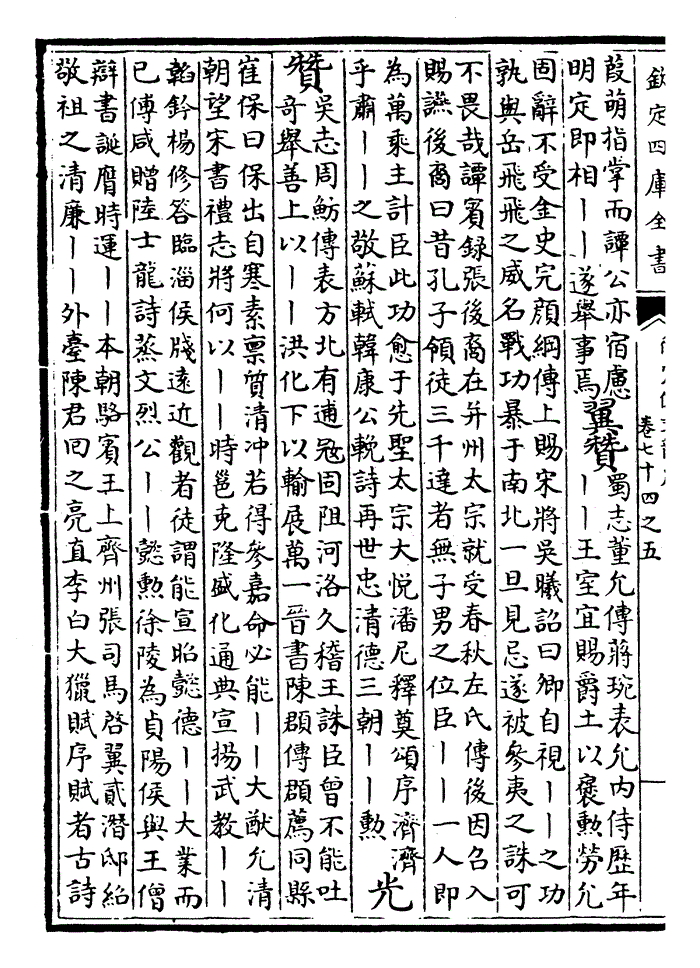 欽定四庫全書
卷七十四之五
葭萌指掌而譚公亦宿慮
明定即相丨丨遂舉事焉
翼贊
蜀志董允傳蔣琬表允内侍歷年
丨丨王室宜賜爵土以褒勲勞允
固辭不受金史完顔綱傳上賜宋將吳曦詔曰卿自視丨丨之功
孰與岳飛飛之威名戰功暴于南北一旦見忌遂被參夷之誅可
不畏哉譚賓録張後裔在并州太宗就受春秋左氏傳後因召入
賜讌後裔曰昔孔子領徒三千達者無子男之位臣丨丨一人即
為萬乘主計臣此功愈于先聖太宗大悦潘尼釋奠頌序濟濟
乎肅丨丨之敬蘇軾韓康公輓詩再世忠清德三朝丨丨勲
光
贊
吳志周魴傳表方北有逋冦固阻河洛久稽王誅臣曾不能吐
竒舉善上以丨丨洪化下以輸展萬一晉書陳頵傳頵薦同縣
崔保曰保出自寒素禀質清冲若得參嘉命必能丨丨大猷允清
朝望宋書禮志將何以丨丨時邕克隆盛化通典宣揚武教丨丨
韜鈐楊修答臨淄侯牋遠近觀者徒謂能宣昭懿德丨丨大業而
已傅咸贈陸士龍詩烝文烈公丨丨懿勲徐陵為貞陽侯與王僧
辯書誕膺時運丨丨本朝駱賓王上齊州張司馬啓翼貳潛邸紹
敬祖之清廉丨丨外臺陳君囘之亮直李白大獵賦序賦者古詩